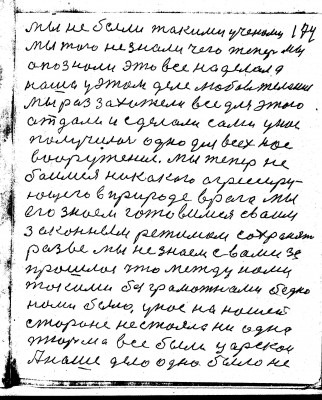 мы не были такими учеными 174
мы того не знали чего тепер мы
опознали это все наделала
наша у этом деле любов техники
мы раз захотели все для этого
отдали и сделали сами у нас
получилос одно для всех нас
вооружения. мы тепер не
боимся никакого агресиру-
ющего в природе врага мы
его знаем готовимся своим
законным режимом сохранят
разве мы не знаем с вами за
прошлое что между нами
такими безграмотными бедно
нами было, у нас на нашей
стороне не стояла ни одна
тюрма все были царской
А наше дело одно было не